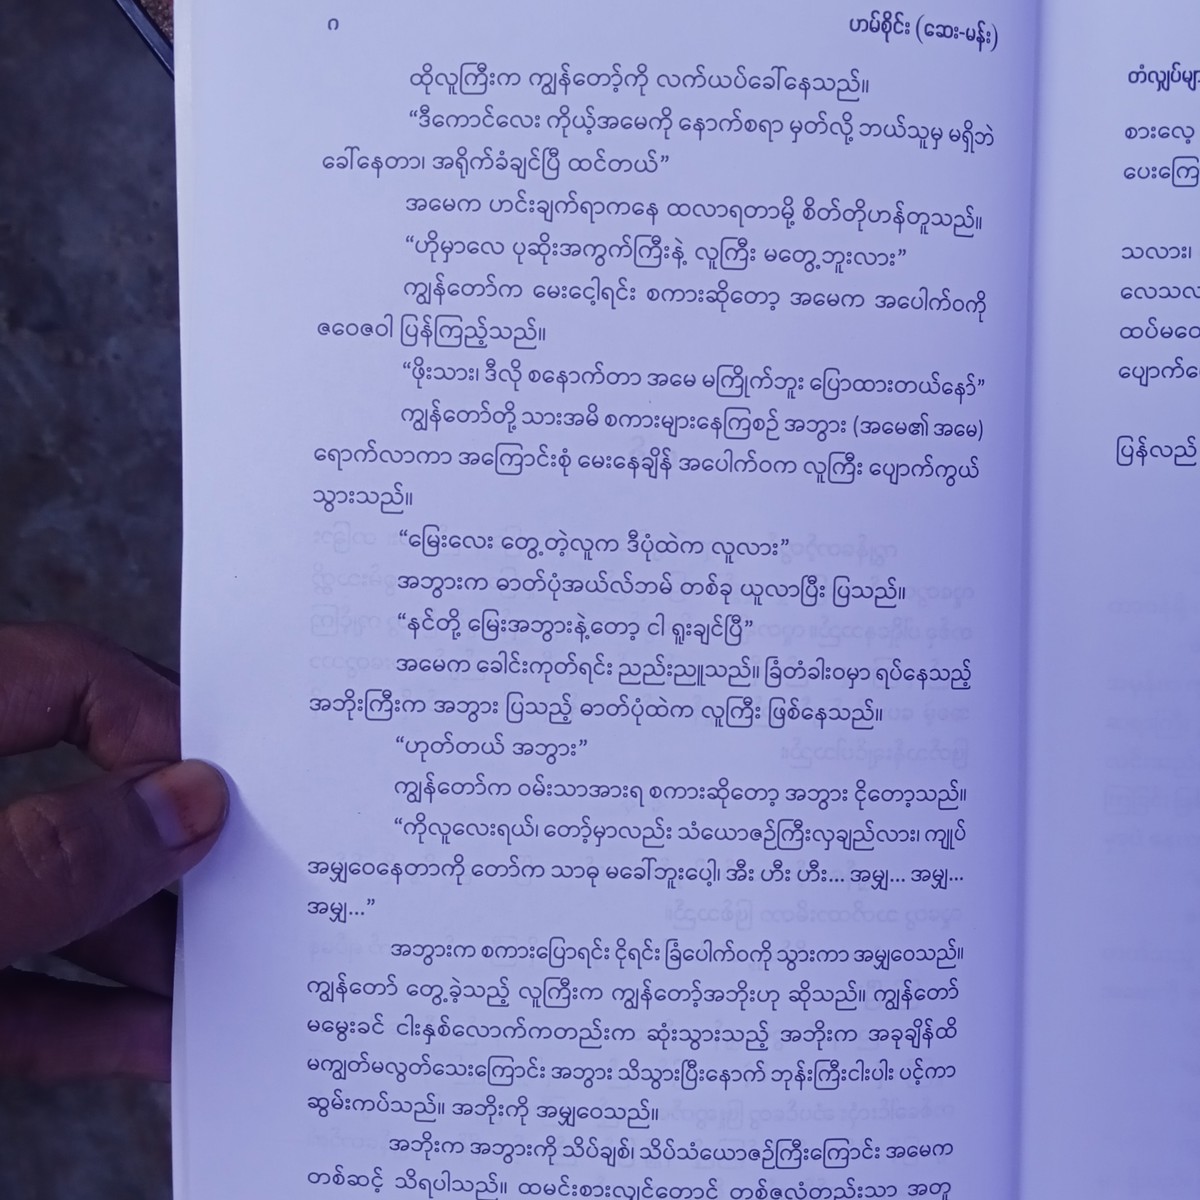 ဂ
ဟမ်စိုင်း (ဆေး-မန်း)
ထိုလူကြီးက ကျွန်တော့်ကို လက်ယပ်ခေါ်နေသည်။
“ဒီကောင်လေး ကိုယ့်အမေကို နောက်စရာ မှတ်လို့ ဘယ်သူမှ မရှိဘဲ
ခေါ်နေတာ၊ အရိုက်ခံချင်ပြီ ထင်တယ်”
အမေက ဟင်းချက်ရာကနေ ထလာရတာမို့ စိတ်တိုဟန်တူသည်။
“ဟိုမှာလေ ပုဆိုးအကွက်ကြီးနဲ့ လူကြီး မတွေ့ဘူးလား”
ကျွန်တော်က မေးငေါ့ရင်း စကားဆိုတော့ အမေက အပေါက်ဝကို
ဇဝေဇဝါ ပြန်ကြည့်သည်။
“ဖိုးသား၊ ဒီလို စနောက်တာ အမေ မကြိုက်ဘူး ပြောထားတယ်နော်”
ကျွန်တော်တို့ သားအမိ စကားများနေကြစဉ် အဘွား (အမေ၏ အမေ)
ရောက်လာကာ အကြောင်းစုံ မေးနေချိန် အပေါက်ဝက လူကြီး ပျောက်ကွယ်
သွားသည်။
“မြေးလေး တွေ့တဲ့လူက ဒီပုံထဲက လူလား”
အဘွားက ဓာတ်ပုံအယ်လ်ဘမ် တစ်ခု ယူလာပြီး ပြသည်။
“နင်တို့ မြေးအဘွားနဲ့တော့ ငါ ရူးချင်ပြီ”
အမေက ခေါင်းကုတ်ရင်း ညည်းညူသည်။ ခြံတံခါးဝမှာ ရပ်နေသည့်
အဘိုးကြီးက အဘွား ပြသည့် ဓာတ်ပုံထဲက လူကြီး ဖြစ်နေသည်။
“ဟုတ်တယ် အဘွား”
ကျွန်တော်က ဝမ်းသာအားရ စကားဆိုတော့ အဘွား ငိုတော့သည်။
“ကိုလူလေးရယ်၊ တော့်မှာလည်း သံယောဇဉ်ကြီးလှချည်လား၊ ကျုပ်
အမျှဝေနေတာကို တော်က သာဓု မခေါ်ဘူးပေါ့၊ အီး ဟီး ဟီး... အမျှ... အမျှ...
အမျှ...”
အဘွားက စကားပြောရင်း ငိုရင်း ခြံပေါက်ဝကို သွားကာ အမျှဝေသည်။
ကျွန်တော် တွေ့ခဲ့သည့် လူကြီးက ကျွန်တော့်အဘိုးဟု ဆိုသည်။ ကျွန်တော်
မမွေးခင် ငါးနှစ်လောက်ကတည်းက ဆုံးသွားသည့် အဘိုးက အခုချိန်ထိ
မကျွတ်မလွတ်သေးကြောင်း အဘွား သိသွားပြီးနောက် ဘုန်းကြီးငါးပါး ပင့်ကာ
ဆွမ်းကပ်သည်။ အဘိုးကို အမျှဝေသည်။
အဘိုးက အဘွားကို သိပ်ချစ်၊ သိပ်သံယောဇဉ်ကြီးကြောင်း အမေက
တစ်ဆင့် သိရပါသည်။ ထမင်းစားလျှင်တောင် တစ်ဇလုံတည်းသာ အတူ
စားလေ့
သလား၊
ပြန်လည်